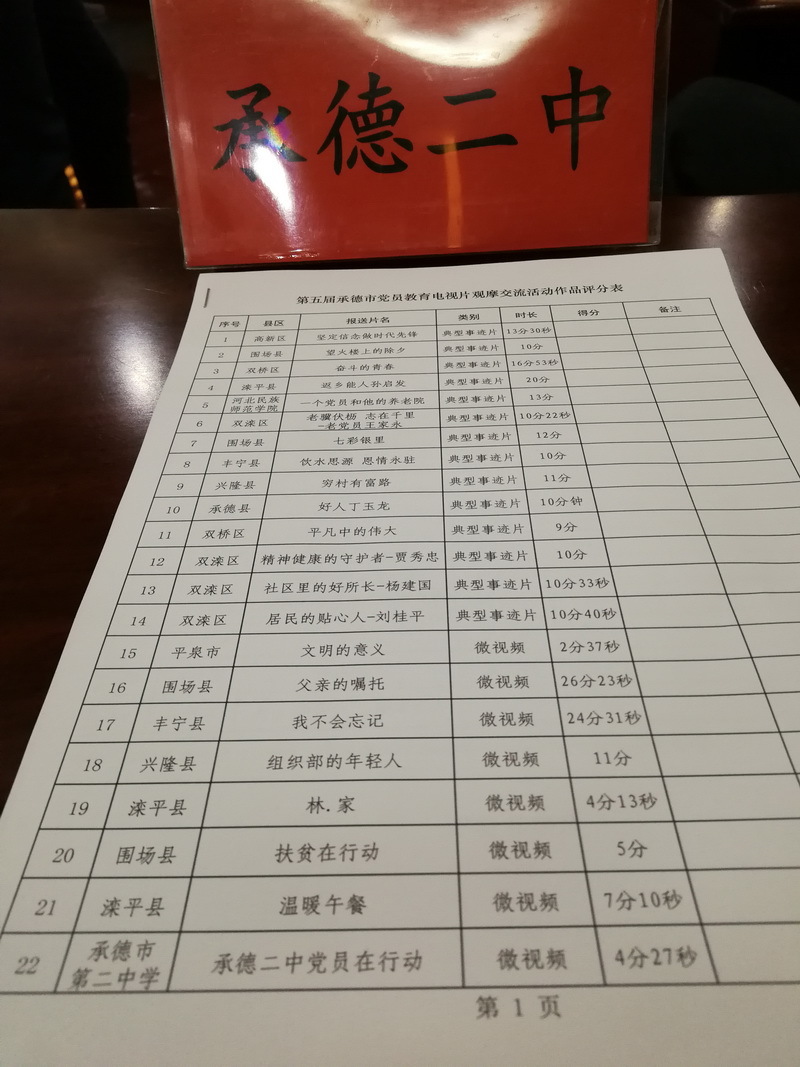 承德二中
第五届承德市党员教育电视片观摩交流活动作品评分表
序号 县区 报送片名 类别 时长 得分 备注
1 高新区 坚定信念做时代先锋 典型事迹片 13分30秒
2 围场县 望火楼上的除夕 典型事迹片 10分
3 双桥区 奋斗的青春 典型事迹片 16分53秒
4 滦平县 返乡能人孙启发 典型事迹片 20分
5 河北民族师范学院 一个党员和他的养老院 典型事迹片 13分
6 双滦区 老骥伏枥 志在千里-老党员王家永 典型事迹片 10分22秒
7 围场县 七彩银里 典型事迹片 12分
8 丰宁县 饮水思源 恩情永驻 典型事迹片 10分
9 兴隆县 穷村有富路 典型事迹片 11分
10 承德县 好人丁玉龙 典型事迹片 10分钟
11 双桥区 平凡中的伟大 典型事迹片 9分
12 双滦区 精神健康的守护者-贾秀忠 典型事迹片 10分
13 双滦区 社区里的好所长-杨建国 典型事迹片 10分33秒
14 双滦区 居民的贴心人-刘桂平 典型事迹片 10分40秒
15 平泉市 文明的意义 微视频 2分37秒
16 围场县 父亲的嘱托 微视频 26分23秒
17 丰宁县 我不会忘记 微视频 24分31秒
18 兴隆县 组织部的年轻人 微视频 11分
19 滦平县 林.家 微视频 4分13秒
20 围场县 扶贫在行动 微视频 5分
21 滦平县 温暖午餐 微视频 7分10秒
22 承德市第二中学 承德二中党员在行动 微视频 4分27秒
第 1 页